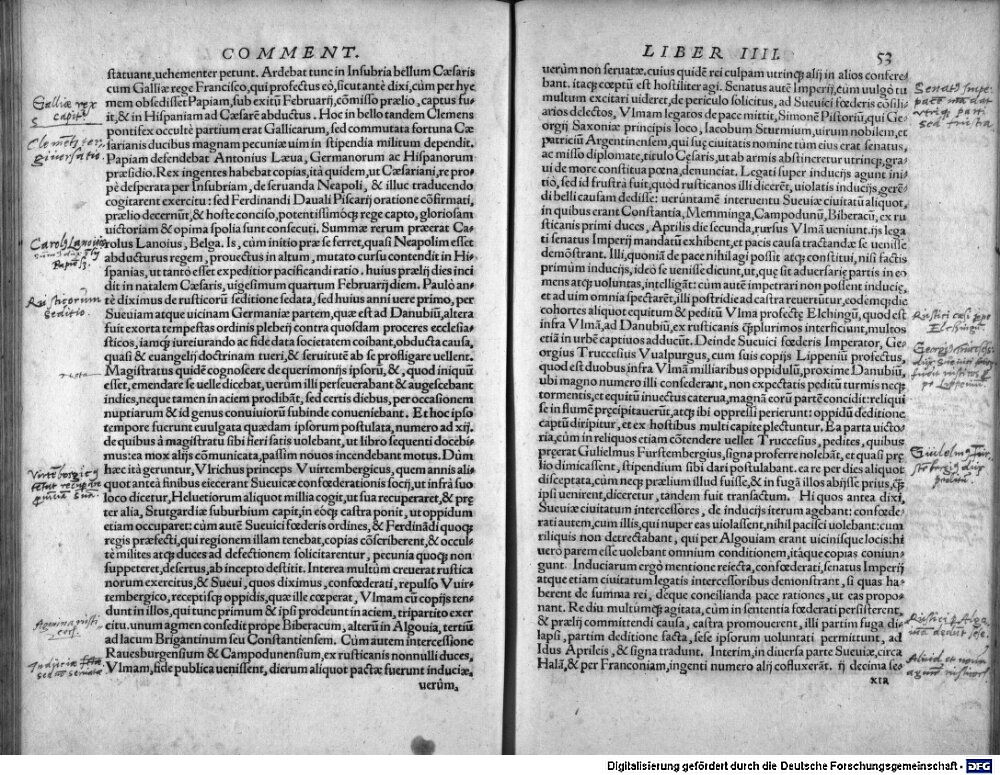 COMMENT.
statuant, uehementer petunt. Ardebat tunc in Insubria bellum Cæsaris
cum Galliæ rege Francisco, qui profectus eò, sicut antè dixi, cùm per hye
mem obsedisset Papiam, sub exitũ Februarij, cõmisso prælio, captus fu-
it, & in Hispaniam ad Cæsarẽ abductus. Hoc in bello tandem Clemens
pontifex occultè partium erat Gallicarum, sed commutata fortuna Cæ
sarianis ducibus magnam pecuniæ uim in stipendia militum dependit.
Papiam defendebat Antonius Læua, Germanorum ac Hispanorum
præsidio. Rex ingentes habebat copias, ità quidem, ut Cæsariani, re pro-
pè desperata per Insubriam, de seruanda Neapoli, & illuc traducendo
cogitarent exercitu: sed Ferdinandi Dauali Piscarij oratione cõfirmati,
prælio decernũt, & hoste conciso, potentissimóq; rege capto, gloriosam
uictoriam & opima spolia sunt consecuti. Summæ rerum præerat Ca-
rolus Lanoius, Belga. Is, cùm initio præ se ferret, quasi Neapolim esset
abducturus regem, prouectus in altum, mutato cursu contendit in His-
panias, ut tantò esset expeditior pacificandi ratio. huius prælij dies inci
dit in natalem Cæsaris, uigesimum quartum Februarij diem. Paulò an-
tè diximus de rusticorũ seditione sedata, sed huius anni uere primo, per
Sueuiam atque uicinam Germaniæ partem, quæ est ad Danubiũ, altera
fuit exorta tempestas ordinis plebeij contra quosdam proceres ecclesia-
sticos, iamq; iureiurando ac fide data societatem coibant, obducta causa,
quasi & euangelij doctrinam tueri, & seruitutẽ ab se profligare uellent.
Magistratus quidẽ cognoscere de querimonijs ipsorũ, &, quod iniquũ
esset, emendare se uelle dicebat, uerùm illi perseuerabant & augescebant
indies, neque tamen in aciem prodibãt, sed certis diebus, per occasionem
nuptiarum & id genus conuiuiorũ subinde conueniebant. Et hoc ipso
tempore fuerunt euulgata quædam ipsorum postulata, numero ad xij.
de quibus à magistratu sibi fieri satis uolebant, ut libro sequenti docebi-
mus: ea mox alijs cõmunicata, passim nouos incendebant motus. Dũm
hæc ità geruntur, Vlrichus princeps Vuirtembergicus, quem annis ali-
quot anteà finibus eiecerant Sueuicæ confœderationis socij, ut infrà suo
loco dicetur, Heluetiorum aliquot millia cogit, ut sua recuperaret, & prę
ter alia, Stutgardiæ suburbium capit, in eóq; castra ponit, ut oppidum
etiam occuparet: cùm autẽ Sueuici fœderis ordines, & Ferdinãdi quoq;
regis præfecti, qui regionem illam tenebat, copias cõscriberent, & occul-
tè milites atq; duces ad defectionem solicitarentur, pecunia quoq; non
suppeteret, desertus, ab incepto destitit. Interea multùm creuerat rustica
norum exercitus, & Sueui, quos diximus, confœderati, repulso Vuir-
tembergico, receptisq; oppidis, quæ ille cœperat, Vlmam cũ copijs ten-
dunt in illos, qui tunc primum & ipsi prodeunt in aciem, tripartito exer
citu. unum agmen consedit prope Biberacum, alterũ in Algouia, tertiũ
ad lacum Brigantinum seu Constantiensem. Cùm autem intercessione
Rauesburgensium & Campodunensium, ex rusticanis nonnulli duces,
Vlmam, fide publica uenissent, dierum aliquot pactæ fuerunt induciæ,
uerùm,
Galliæ rex
captus
Rusticorum
Seditio.
LIBER IIII. 53
uerùm non seruatæ, cuius quidẽ rei culpam utrinq; alij in alios confere-
bant. itaq; cœptũ est hostiliter agi. Senatus autẽ Imperij, cùm uulgò tu
multum excitari uideret, de periculo solicitus, ad Sueuici fœderis cõsili-
arios delectos, Vlmam legatos de pace mittit, Simonẽ Pistoriũ, qui Ge-
orgij Saxoniæ principis loco, Iacobum Sturmium, uirum nobilem, et
patriciũ Argentinensem, qui suę ciuitatis nomine tùm eius erat senatus,
ac misso diplomate, titulo Cęsaris, ut ab armis abstineretur utrinq;, gra-
ui de more constituta pœna, denunciat. Legati super inducijs agunt ini-
tiò, sed id frustrà fuit, quòd rusticanos illi dicerẽt, uiolatis inducijs, gerẽ-
di belli causam dedisse: ueruntamẽ interuentu Sueuiæ ciuitatũ aliquot,
in quibus erant Constantia, Memminga, Campodunũ, Biberacũ, ex ru
sticanis primi duces, Aprilis die secunda, rursus Vlmã ueniunt. ijs lega
ti senatus Imperij mandatũ exhibent, et pacis causa tractandæ se uenisse
demõstrant. Illi, quoniã de pace nihil agi possit atq; constitui, nisi factis
primùm inducijs, ideò se uenisse dicunt, ut, quę sit aduersarię partis in eo
mens atq; uoluntas, intelligãt: cùm autẽ impetrari non possent induciæ,
et ad uim omnia spectarẽt, illi postridie ad castra reuertũtur, eodemq; die
cohortes aliquot equitum & peditũ Vlma profectę Elchingũ, quod est
infra Vlmã, ad Danubiũ, ex rusticanis q̃plurimos interficiunt, multos
etiã in urbẽ captiuos adducũt. Deinde Sueuici fœderis Imperator, Ge-
orgius Truccesius Vualpurgus, cum suis copijs Lippeniũ profectus,
quod est duobus infra Vlmã milliaribus oppidulũ, proxime Danubiũ,
ubi magno numero illi consederant, non expectatis peditũ turmis neq;
tormentis, et equitũ inuectus caterua, magnã eorũ partẽ concidit: reliqui
se in flumẽ pręcipitauerũt, atq; ibi oppressi perierunt: oppidũ deditione
captũ diripitur, et ex hostibus multi capite plectuntur. Ea parta uicto-
ria, cùm in reliquos etiam cõtendere uellet Truccesius, pedites, quibus
pręerat Gulielmus Furstembergius, signa proferre nolebãt, et quasi prę
lio dimicassent, stipendium sibi dari postulabant. ea re per dies aliquot
disceptata, cùm neq; prælium illud fuisse, & in fugã illos abijsse prius, q̃
ipsi uenirent, diceretur, tandem fuit transactum. Hi quos antea dixi,
Sueuiæ ciuitatum intercessores, de inducijs iterum agebant: confœde-
rati autem, cum illis, qui nuper eas uiolassent, nihil pacisci uolebant: cum
riliquis non detrectabant, qui per Algouiam erant uicinísque locis: hi
uerò parem esse uolebant omnium conditionem, itáque copias coniun-
gunt. Induciarum ergò mentione reiecta, confœderati, senatus Imperij
atque etiam ciuitatum legatis intercessoribus demonstrant, si quas ha-
berent de summa rei, deque concilianda pace rationes, ut eas propo-
nant. Re diu multùmq; agitata, cùm in sententia fœderati persisterent,
& prælij committendi causa, castra promouerent, illi partim fuga di-
lapsi, partim deditione facta, sese ipsorum uoluntati permittunt, ad
Idus Aprileis, & signa tradunt. Interim, in diuersa parte Sueuiæ, circa
Halã, & per Franconiam, ingenti numero alij cofluxerãt. ij decima se-
XIR
Rustici cæsi ppe
Elchingũ.
Digitalisierung gefördert durch die Deutsche Forschungsgemeinschaft - DFG